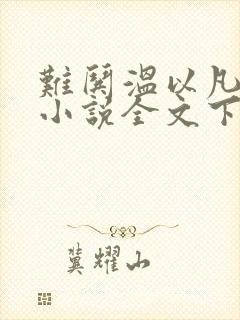 難鬨溫以凡
小說全文下
冀耀山